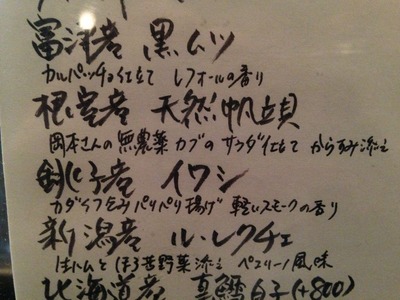 富津産 黒ムツ
カルパッチョ仕立て レフォールの香り
根室産 天然帆立貝
岡本さんの無農薬カブのサラダ仕立て からすみ添え
銚子産 イワシ
カダイフ包みパリパリ揚げ 軽いスモークの香り
新潟産 ル・レクチェ
生ハムとほろ苦野菜添え ペコリーノ風味
北海道産 真鱈白子(+800)